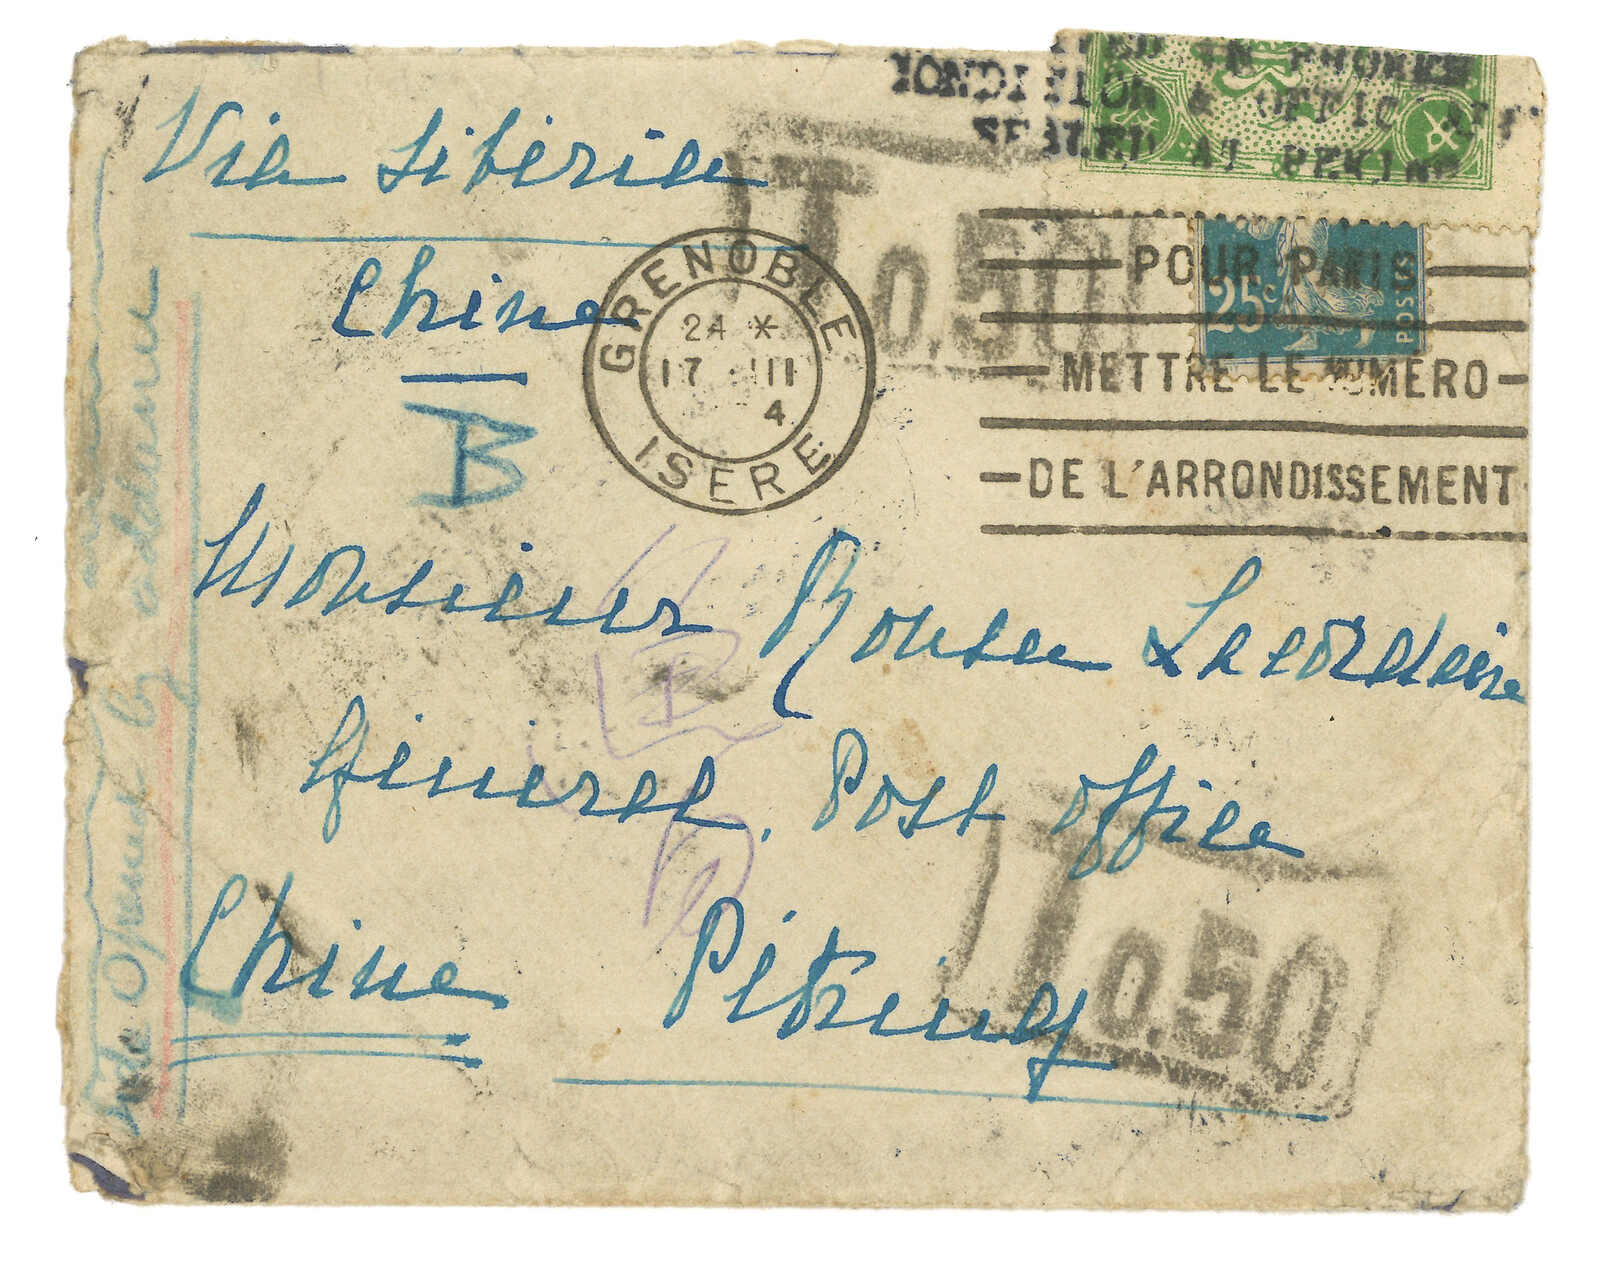 CONDITION & OFFIC
SEALED AT PEKING
Via Sibérie
Chine
B
T 0.50
GRENOBLE
24 *
17 III
4
ISERE
25c
POSTES
POUR PARIS
METTRE LE NUMERO
DE L'ARRONDISSEMENT
Monsieur
General Post Office
Chine Péking
B
T 0.50
Opened by addressee